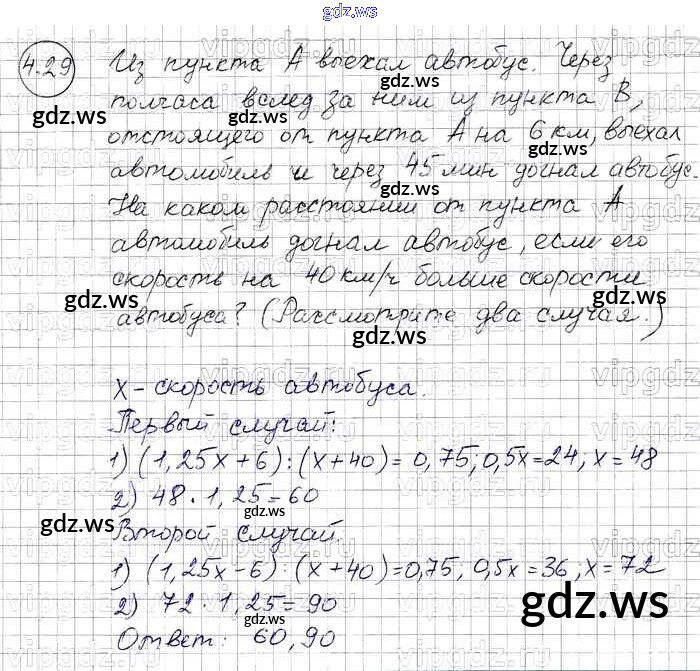 gdz.ws
4.29 Из пункта А выехал автобус. Через
полчаса вслед за ним из пункта В,
отстоящего от пункта А на 6 км, выехал
автомобиль и через 45 мин догнал автобус.
На каком расстоянии от пункта А
автомобиль догнал автобус, если его
скорость на 40 км/ч больше скорости
автобуса? (Рассмотрите два случая.)
х - скорость автобуса.
Первый случай:
1) (1,25х + 6) : (х + 40) = 0,75; 0,5х = 24, х = 48
2) 48 · 1,25 = 60
Второй случай.
1) (1,25х - 6) : (х + 40) = 0,75; 0,5х = 36; х = 72
2) 72 · 1,25 = 90
Ответ: 60, 90
gdz.ws